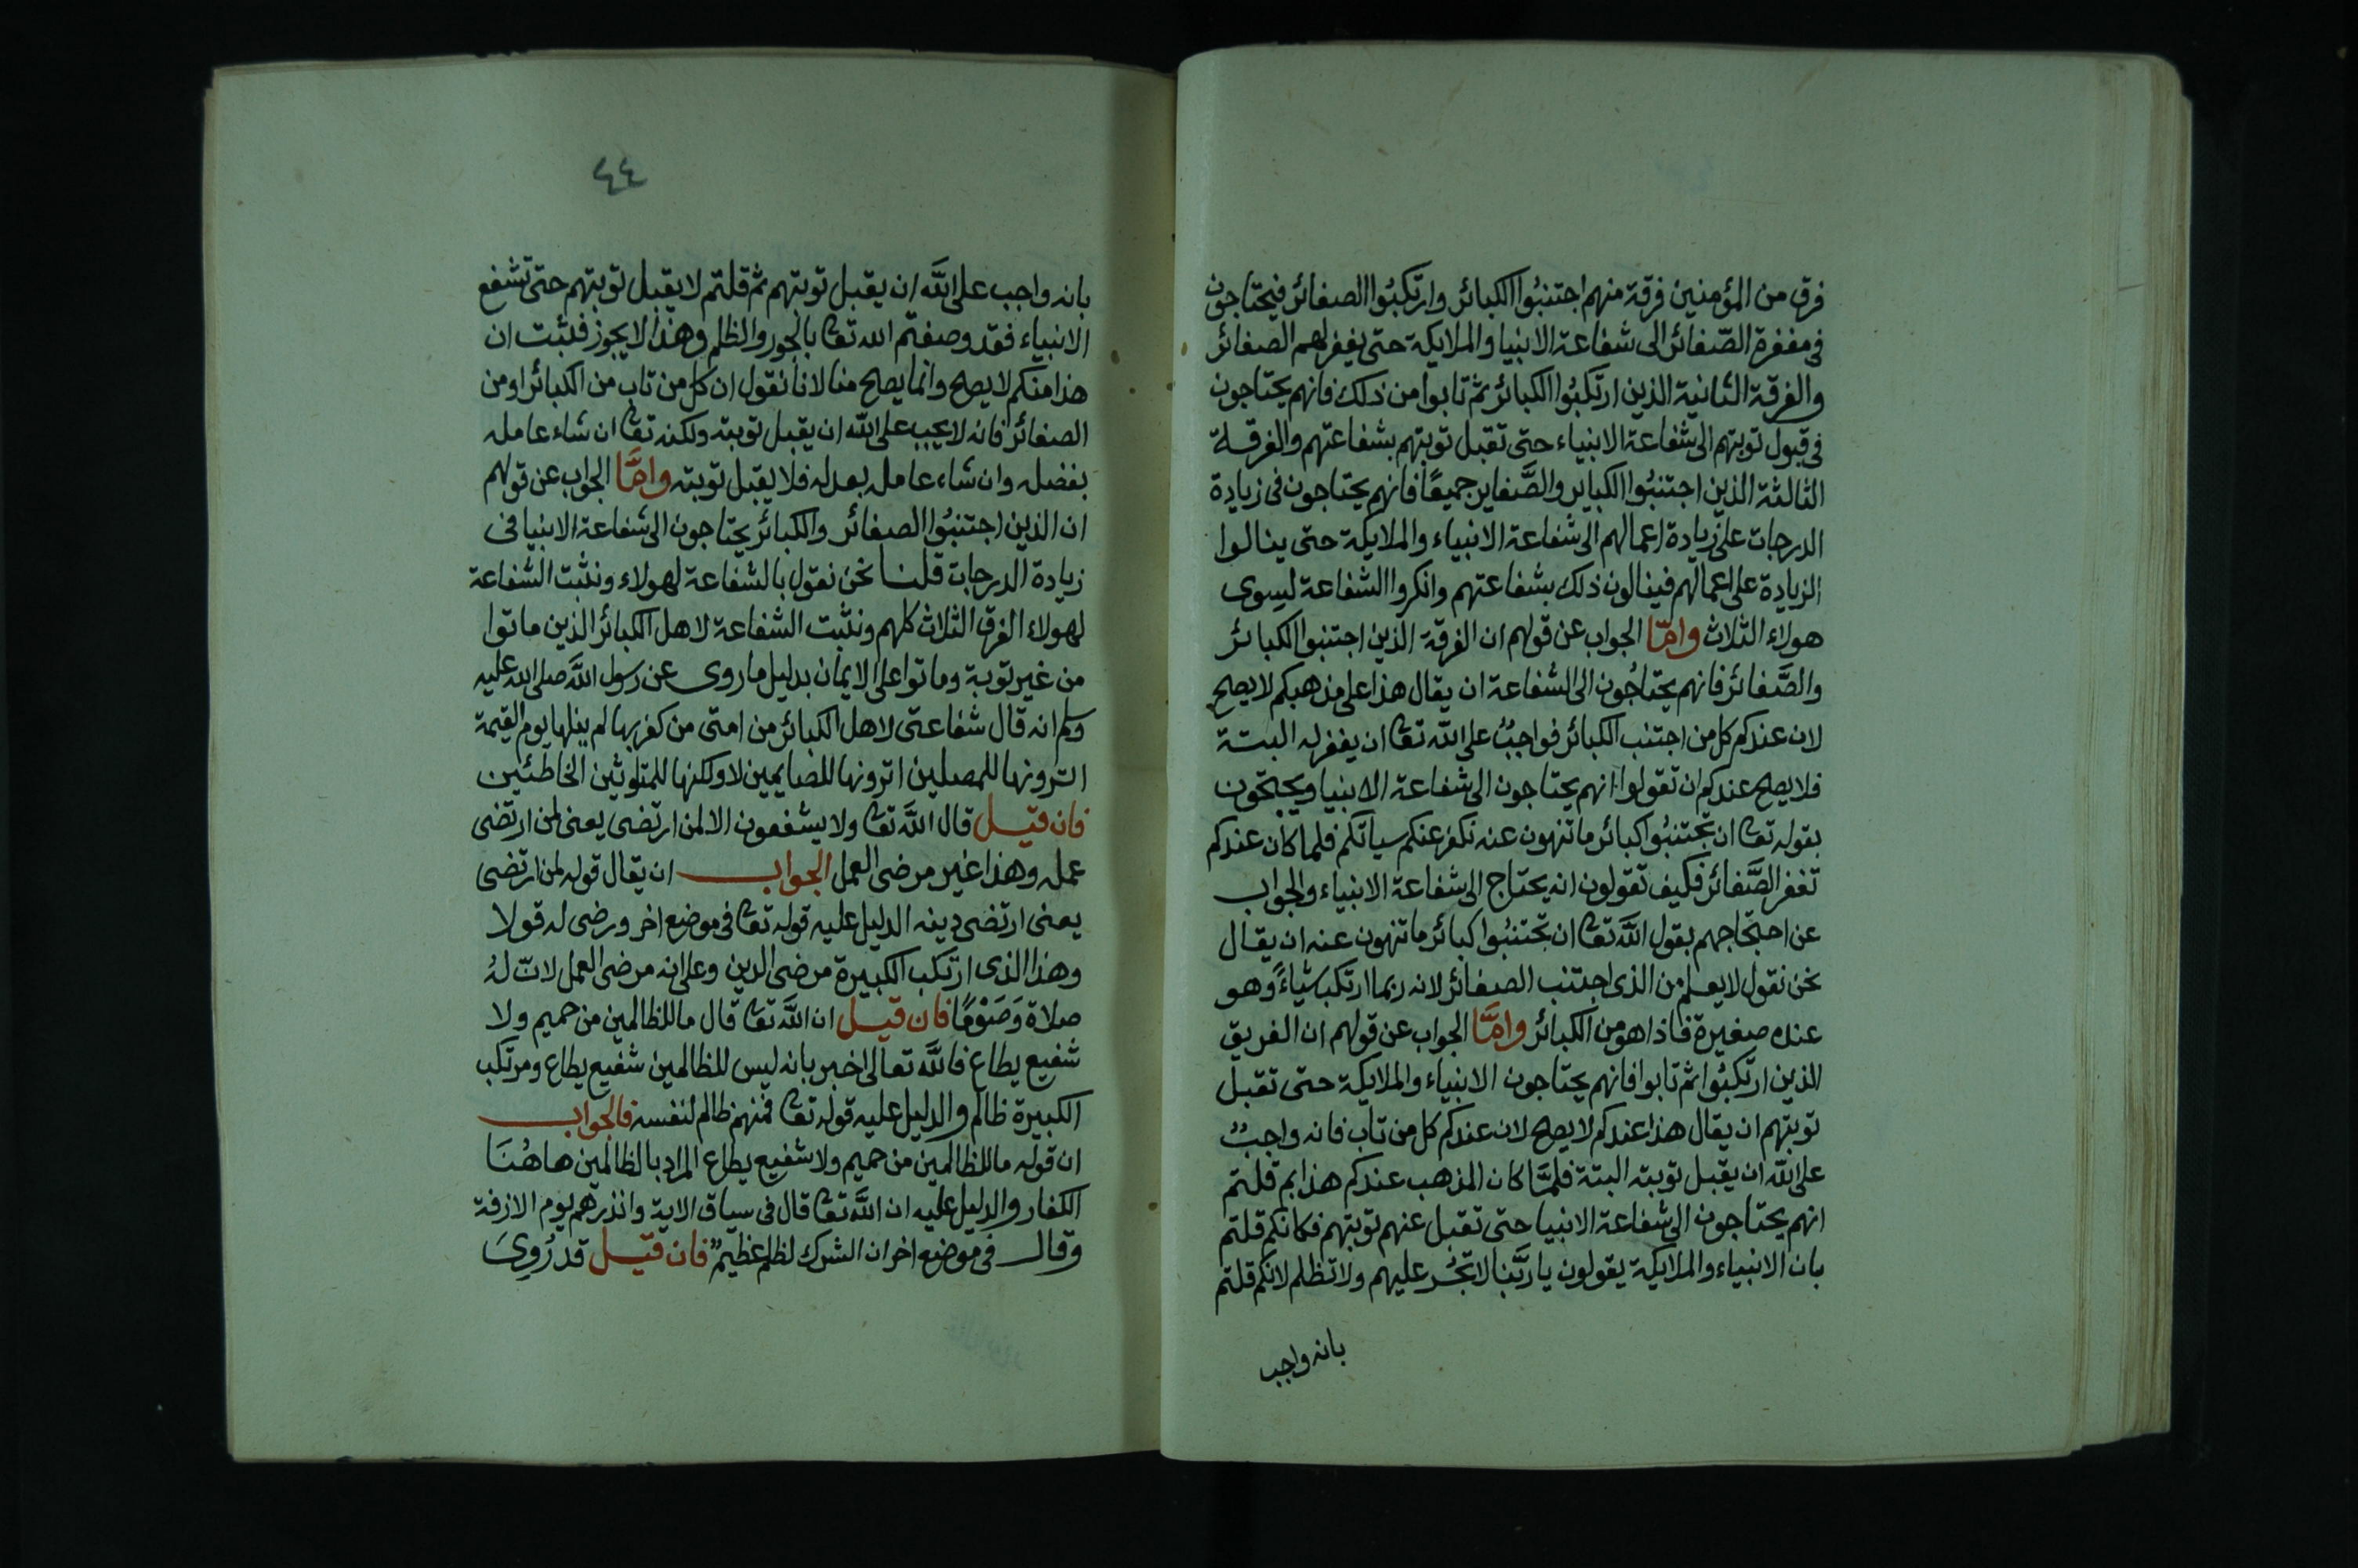 فرق من المؤمنين فرقة منهم اجتنبُوا الكبائر وارتكبُوا الصغائر فيحتاجون
فى مغفرة الصّغائر الى شفاعة الانبيا والملايكة حتى يغفر لهم الصغائر
والفرقة الثانية الذين ارتكبُوا الكبائر ثم تابوا من ذلك فانهم يحتاجون
فى قبول توبتهم الى شفاعة الانبياء حتى تقبل توبتهم بشفاعتهم والفرقة
الثالثة الذين اجتنبُوا الكباير والصَّغاير جميعًا فانهم يحتاجون فى زيادة
الدرجات على زيادة اعمالهم الى شفاعة الانبياء والملايكة حتى ينالوا
الزيادة على اعمالهم فينالون ذلك بشفاعتهم وانكروا الشفاعة ليسوى
هولاء الثلاث وامّا الجواب عن قولهم ان الفرقة الذين اجتنبوا الكبائر
والصَّغائر فانهم يحتاجُون الى الشفاعة ان يقال هذا على مذهبكم لا يصح
لان عندكم كل من اجتنب الكبائر فواجبٌ على الله تعا ان يغفر له البتة
فلا يصح عندكم ان تقولوا انهم يحتاجون الى شفاعة الانبيا ويحتجون
بقوله تعا ان تجتنبُوا كبائر ما تنهون عنه نكفر عنكم سيأتكم فلما كان عندكم
تغفر الصَّغائر فكيف تقولون انه يحتاج الى شفاعة الانبياء والجواب
عن احتجاجهم بقول اللَّه تعا ان تجتنبُوا كبائر ما تنهون عنه ان يقال
نحن نقول لا يعلم من الذى اجتنب الصغائر لانه ربما ارتكب شياءً وهو
عنده صغيرة فاذا هو من الكبائر وامَّا الجواب عن قولهم ان الفريق
الذين ارتكبُوا ثم تابوا فانهم يحتاجون الانبياء والملايكة حتى تقبل
توبتهم ان يقال هذا عندكم لا يصح لان عندكم كل من تاب فانه واجبٌ
على اللّه ان يقبل توبته البتة فلمَّا كان المذهب عندكم هذا بم قلتم
انهم يحتاجون الى شفاعة الانبيا حتى تقبل عنهم توبتهم فكانكم قلتم
بان الانبياء والملايكة يقولون يا ربَّنا لا تجُر عليهم ولا تظلم لانكم قلتم
بانه واجب
٤٤
بانه واجب على اللَّه ان يقبل توبتهم ثم قلتم لا يقبل توبتهم حتى تشفع
الانبياء فقد وصفتم الله تعا بالجور والظلم وهذا لا يجوز فلثبت ان
هذا منكم لا يصح وانما يصح منا لانا نقول ان كل من تاب من الكبائر او من
الصغائر فانه لا يجب على اللّه ان يقبل توبته ولكنه تعا ان شاء عامله
بفضله وان شاء عامله بعدله فلا يقبل توبته وامَّا الجواب عن قولهم
ان الذين اجتنبُوا الصغائر والكبائر يحتاجون الى شفاعة الانبيا فى
زيادة الدرجات قلنا نحن نقول بالشفاعة لهولاء ونثبت الشفاعة
لهولاء الفرق الثلاث كلهم ونثبت الشفاعة لاهل الكبائر الذين ماتوا
من غير توبة وماتوا على الايمان بدليل ما روى عن رسول اللَّه صلى الله عليه
وسلم انه قال شفاعتى لاهل الكبائر من امتى من كفر بها لم ينلها يوم القيمة
اترونها للمصلين اترونها للصايمين لا ولكنها للمتلوثين الخاطئين
فان قيل قال اللَّه تعا ولا يشفعون الا لمن ارتضى يعنى لمن ارتضى
عمله وهذا غير مرضى العمل الجواب ان يقال قوله لمن ارتضى
يعنى ارتضى دينه الدليل عليه قوله تعا فى موضع اخر ورضى له قولا
وهذا الذى ارتكب الكبيرة مرضى الدين وعلى انه مرضى العمل لانّ لهُ
صلاة وَصَوْمًا فان قيل ان اللَّه تعا قال ما للظالمين من حميم ولا
شفيع يطاع فاللَّه تعالى اخبر بانه ليس للظالمين شفيع يطاع ومرتكب
الكبيرة ظالم والدليل عليه قوله تعا فمنهم ظالم لنفسه فالجواب
ان قوله ما للظالمين من حميم ولا شفيع يطاع المراد بالظالمين هاهُنَا
الكفار والدليل عليه ان اللَّه تعا قال فى سياق الاية وانذرهم يوم الازفة
وقال فى موضع اخر ان الشرك لظلم عظيمٌ فان قيل قد رُوِىَ